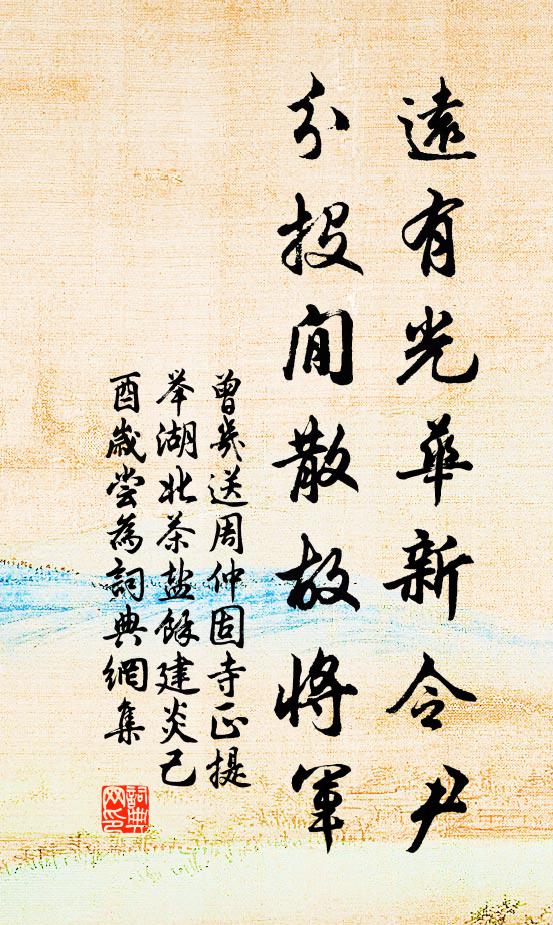 遠有光華新令尹
分投閒散故將軍
曾幾送周仲固寺正提
举湖北茶盐餘建炎己
酉歲尝為詞典網集
詞典网印